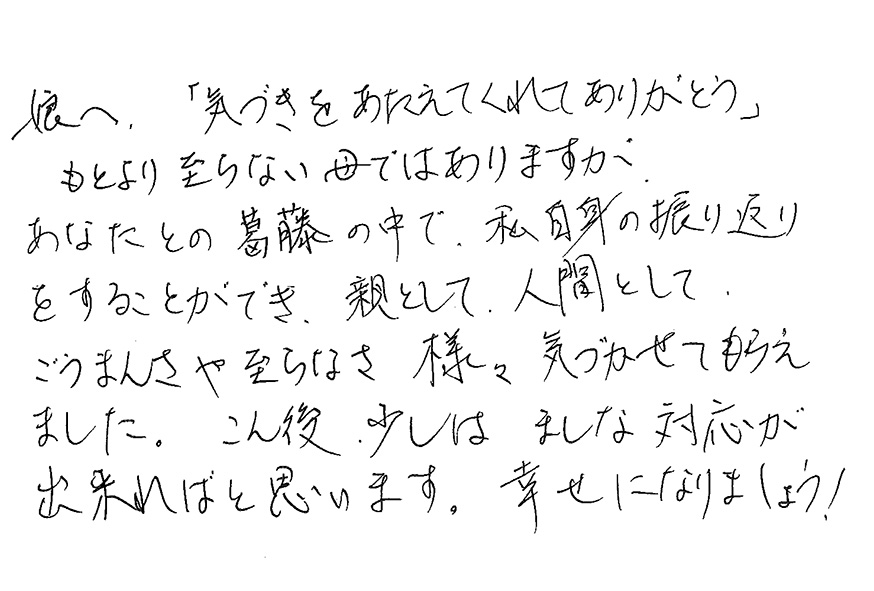 娘へ、「気づきをあたえてくれてありがとう」
もとより至らない母ではありますが、
あなたとの葛藤の中で、私自身の振り返り
をすることができ、親として、人間として、
ごうまんさや至らなさ 様々気づかせてもらえ
ました。こん後、少しは ましな対応が
出来ればと思います。幸せになりましょう!